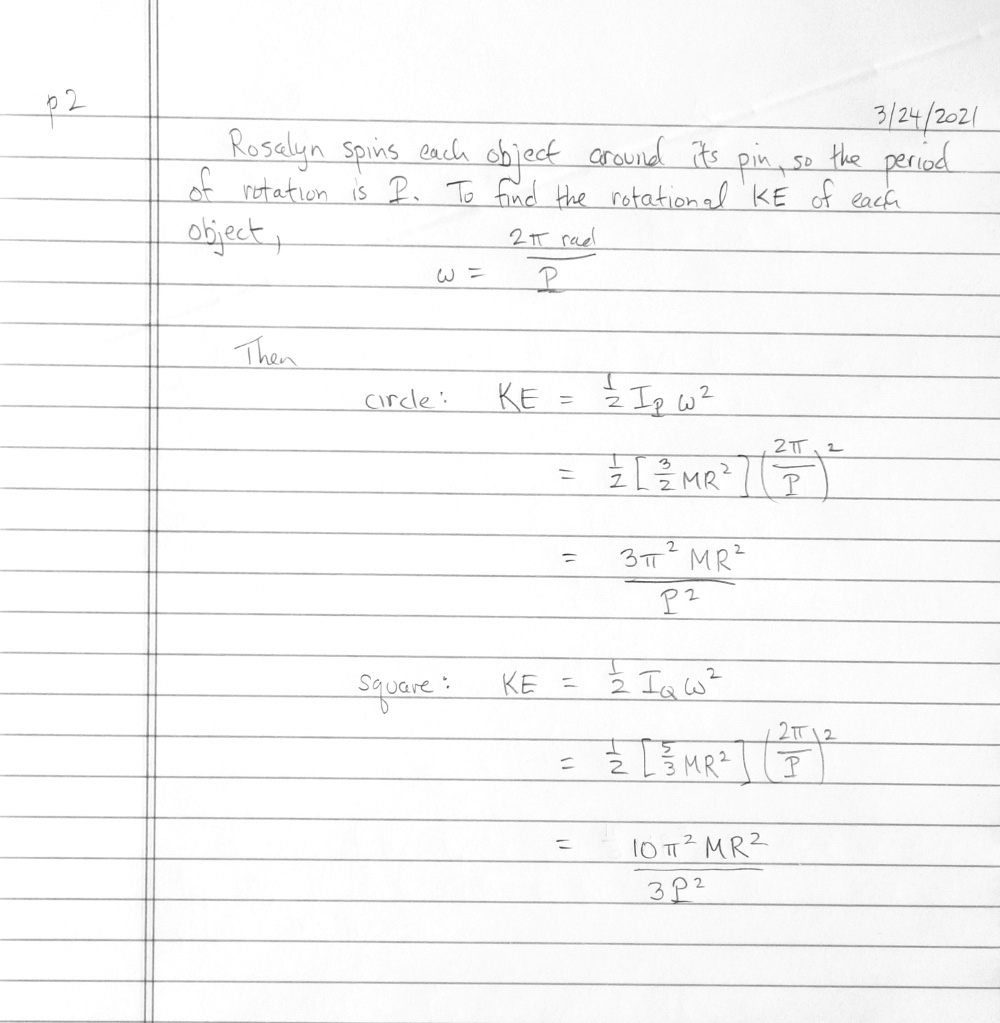 p2
3/24/2021
Rosalyn spins each object around its pin, so the period
of rotation is P. To find the rotational KE of each
object,
ω = 2π rad / P
Then
circle: KE = 1/2 I_P ω²
= 1/2 [3/2 MR²] (2π/P)²
= 3π² MR² / P²
square: KE = 1/2 I_Q ω²
= 1/2 [5/3 MR²] (2π/P)²
= 10π² MR² / 3P²